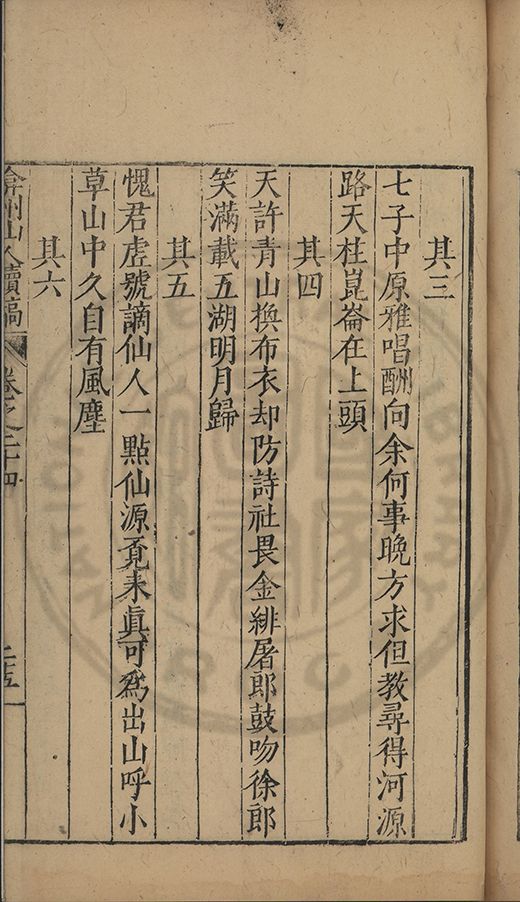 其三
七子中原雅唱酬向余何事晚方求但教尋得河源
路天柱崑崙在上頭
其四
天許青山換布衣却防詩社畏金緋屠郎鼓吻徐郎
笑滿載五湖明月歸
其五
愧君虛號謫仙人一點仙源覔未眞可爲出山呼小
草山中久自有風塵
其六
弇州山人續稿 卷之二十四 二十五